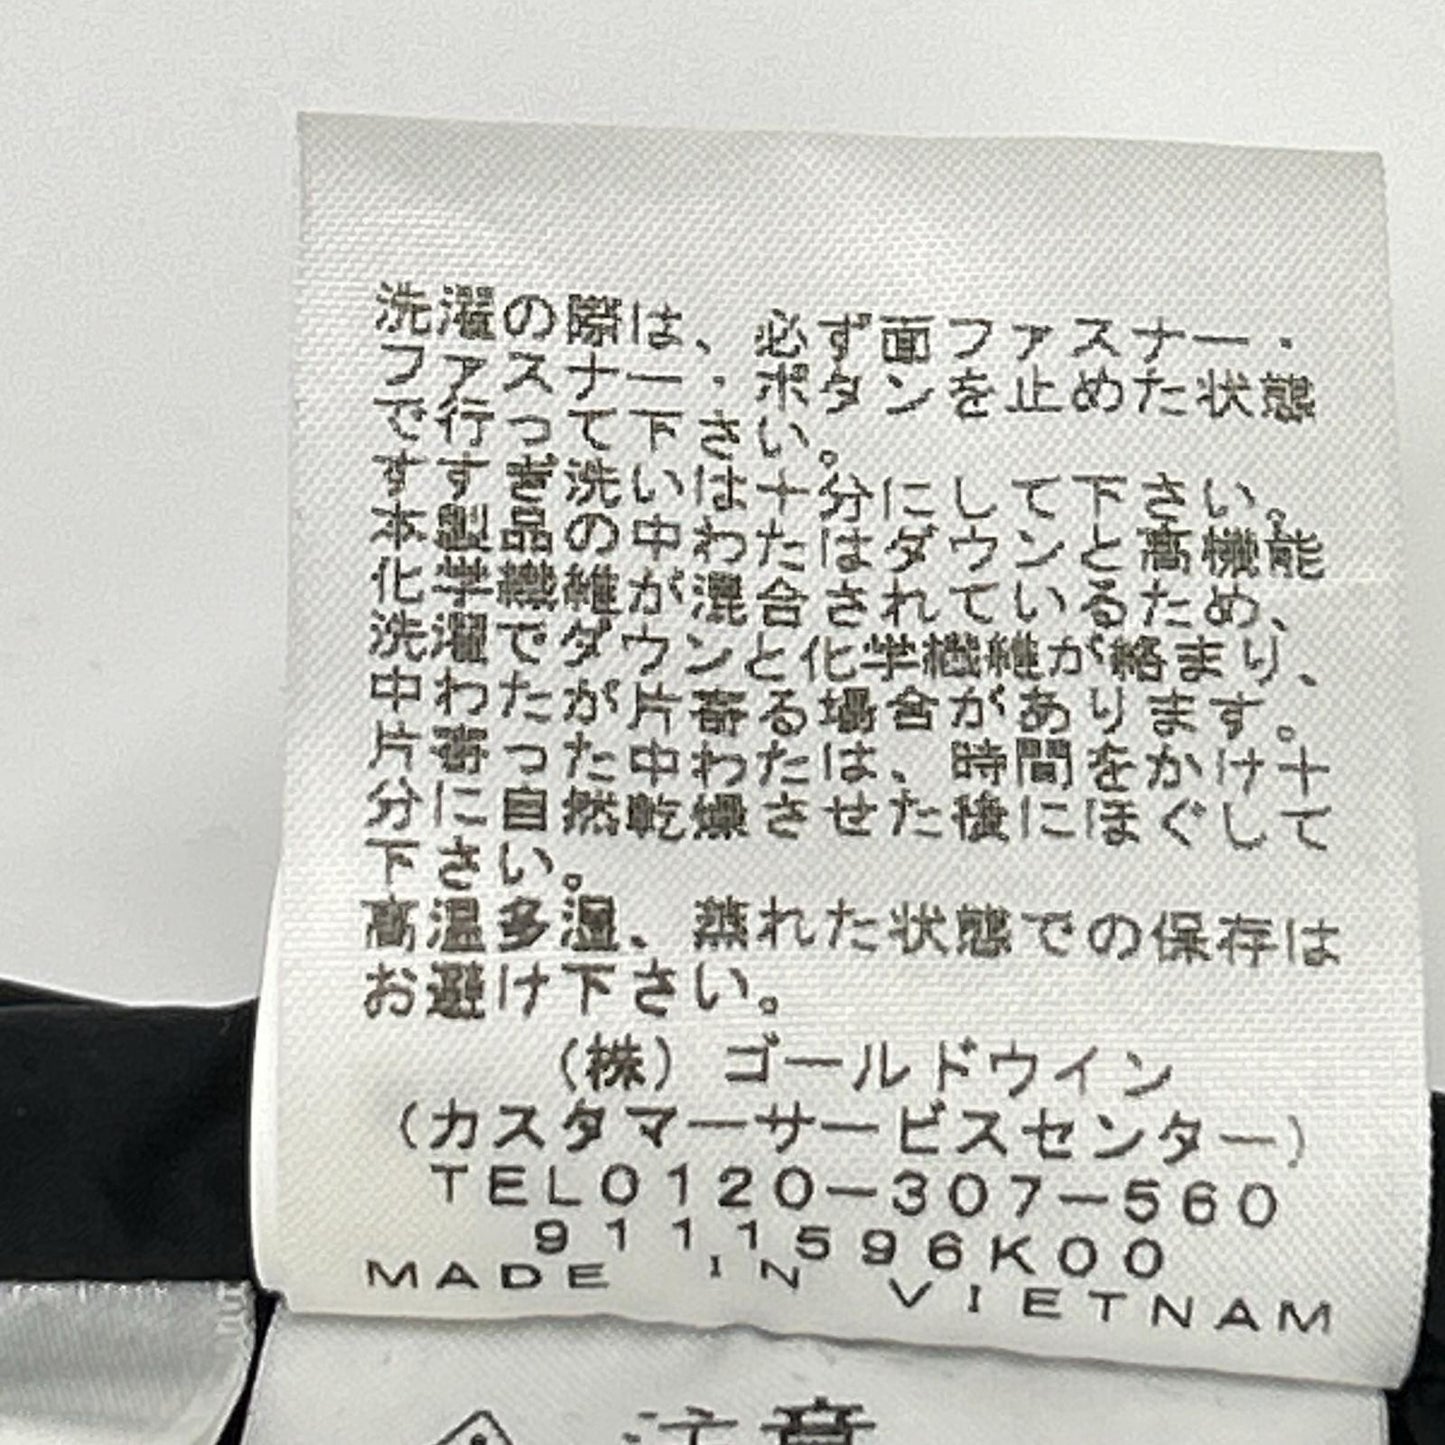 洗濯の際は、必ず面ファスナー・
ファスナー・ボタンを止めた状態
で行って下さい。
すすぎ洗いは十分にして下さい。
本製品の中わたはダウンと高機能
化学繊維が混合されているため、
洗濯でダウンと化学繊維が絡まり、
中わたが片寄る場合があります。
片寄った中わたは、時間をかけ十
分に自然乾燥させた後にほぐして
下さい。
高温多湿、蒸れた状態での保存は
お避け下さい。
(株)ゴールドウイン
(カスタマーサービスセンター)
TEL0120-307-560
9111596K00
MADE IN VIETNAM
注意